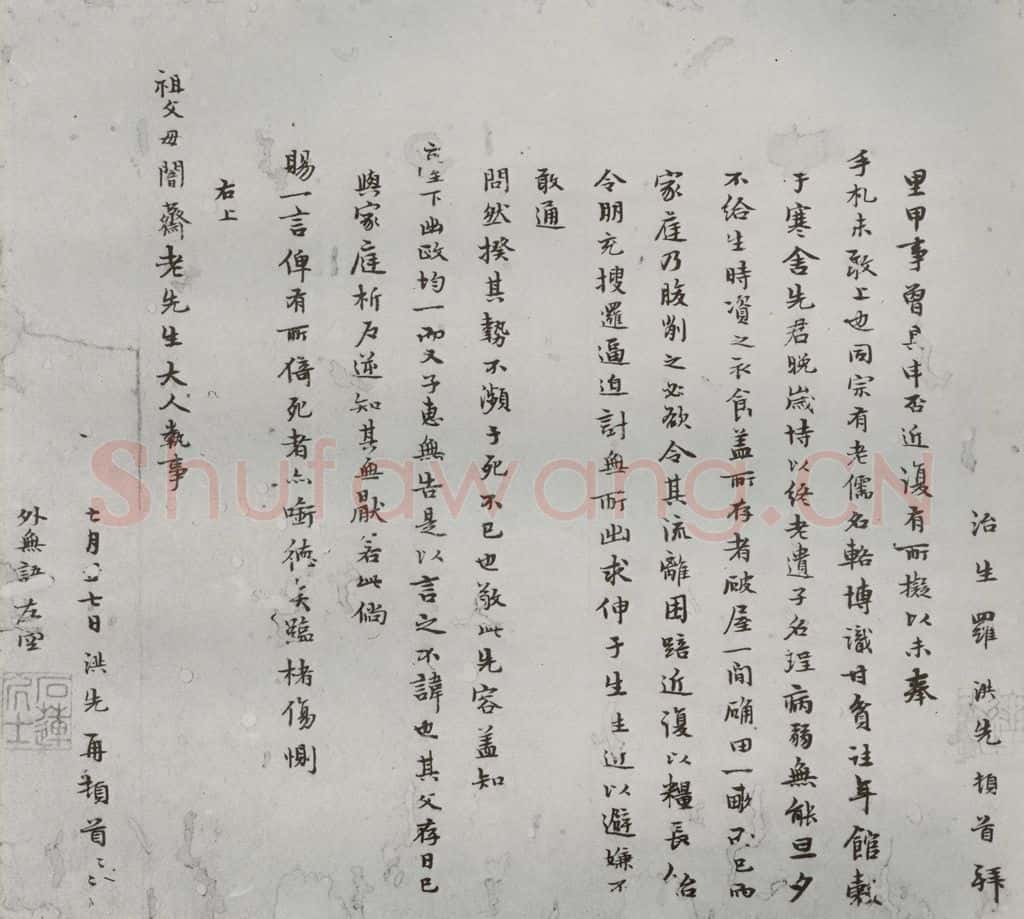 治生羅洪先頓首拜
里甲事曾具申否近復有所擬以未奉
手札未敢上也同宗有老儒名輅博識甘貧往年館穀
于寒舍先君晚歲恃以終老遺子名鋥病弱無能旦夕
不給生時資之衣食盖所存者破屋一間确田一畝不已而
家庭乃朘削之必欲令其流離困踣近復以糧長人役
令朋充搜羅逼迫計無所出求伸于生生近以避嫌不
敢通
問然揆其勢不瀕于死不已也敬此先容盖知
下幽政均一而又子惠無告是以言之不諱也其父存日已
與家庭析居逆知其無厭若此倘
賜一言俾有所倚死者亦啣德矣臨楮傷惻
右上
祖父母誾齋老先生大人執事
七月廿七日洪先再頓首
外無訌左空
石蓮
Shufawang.CN